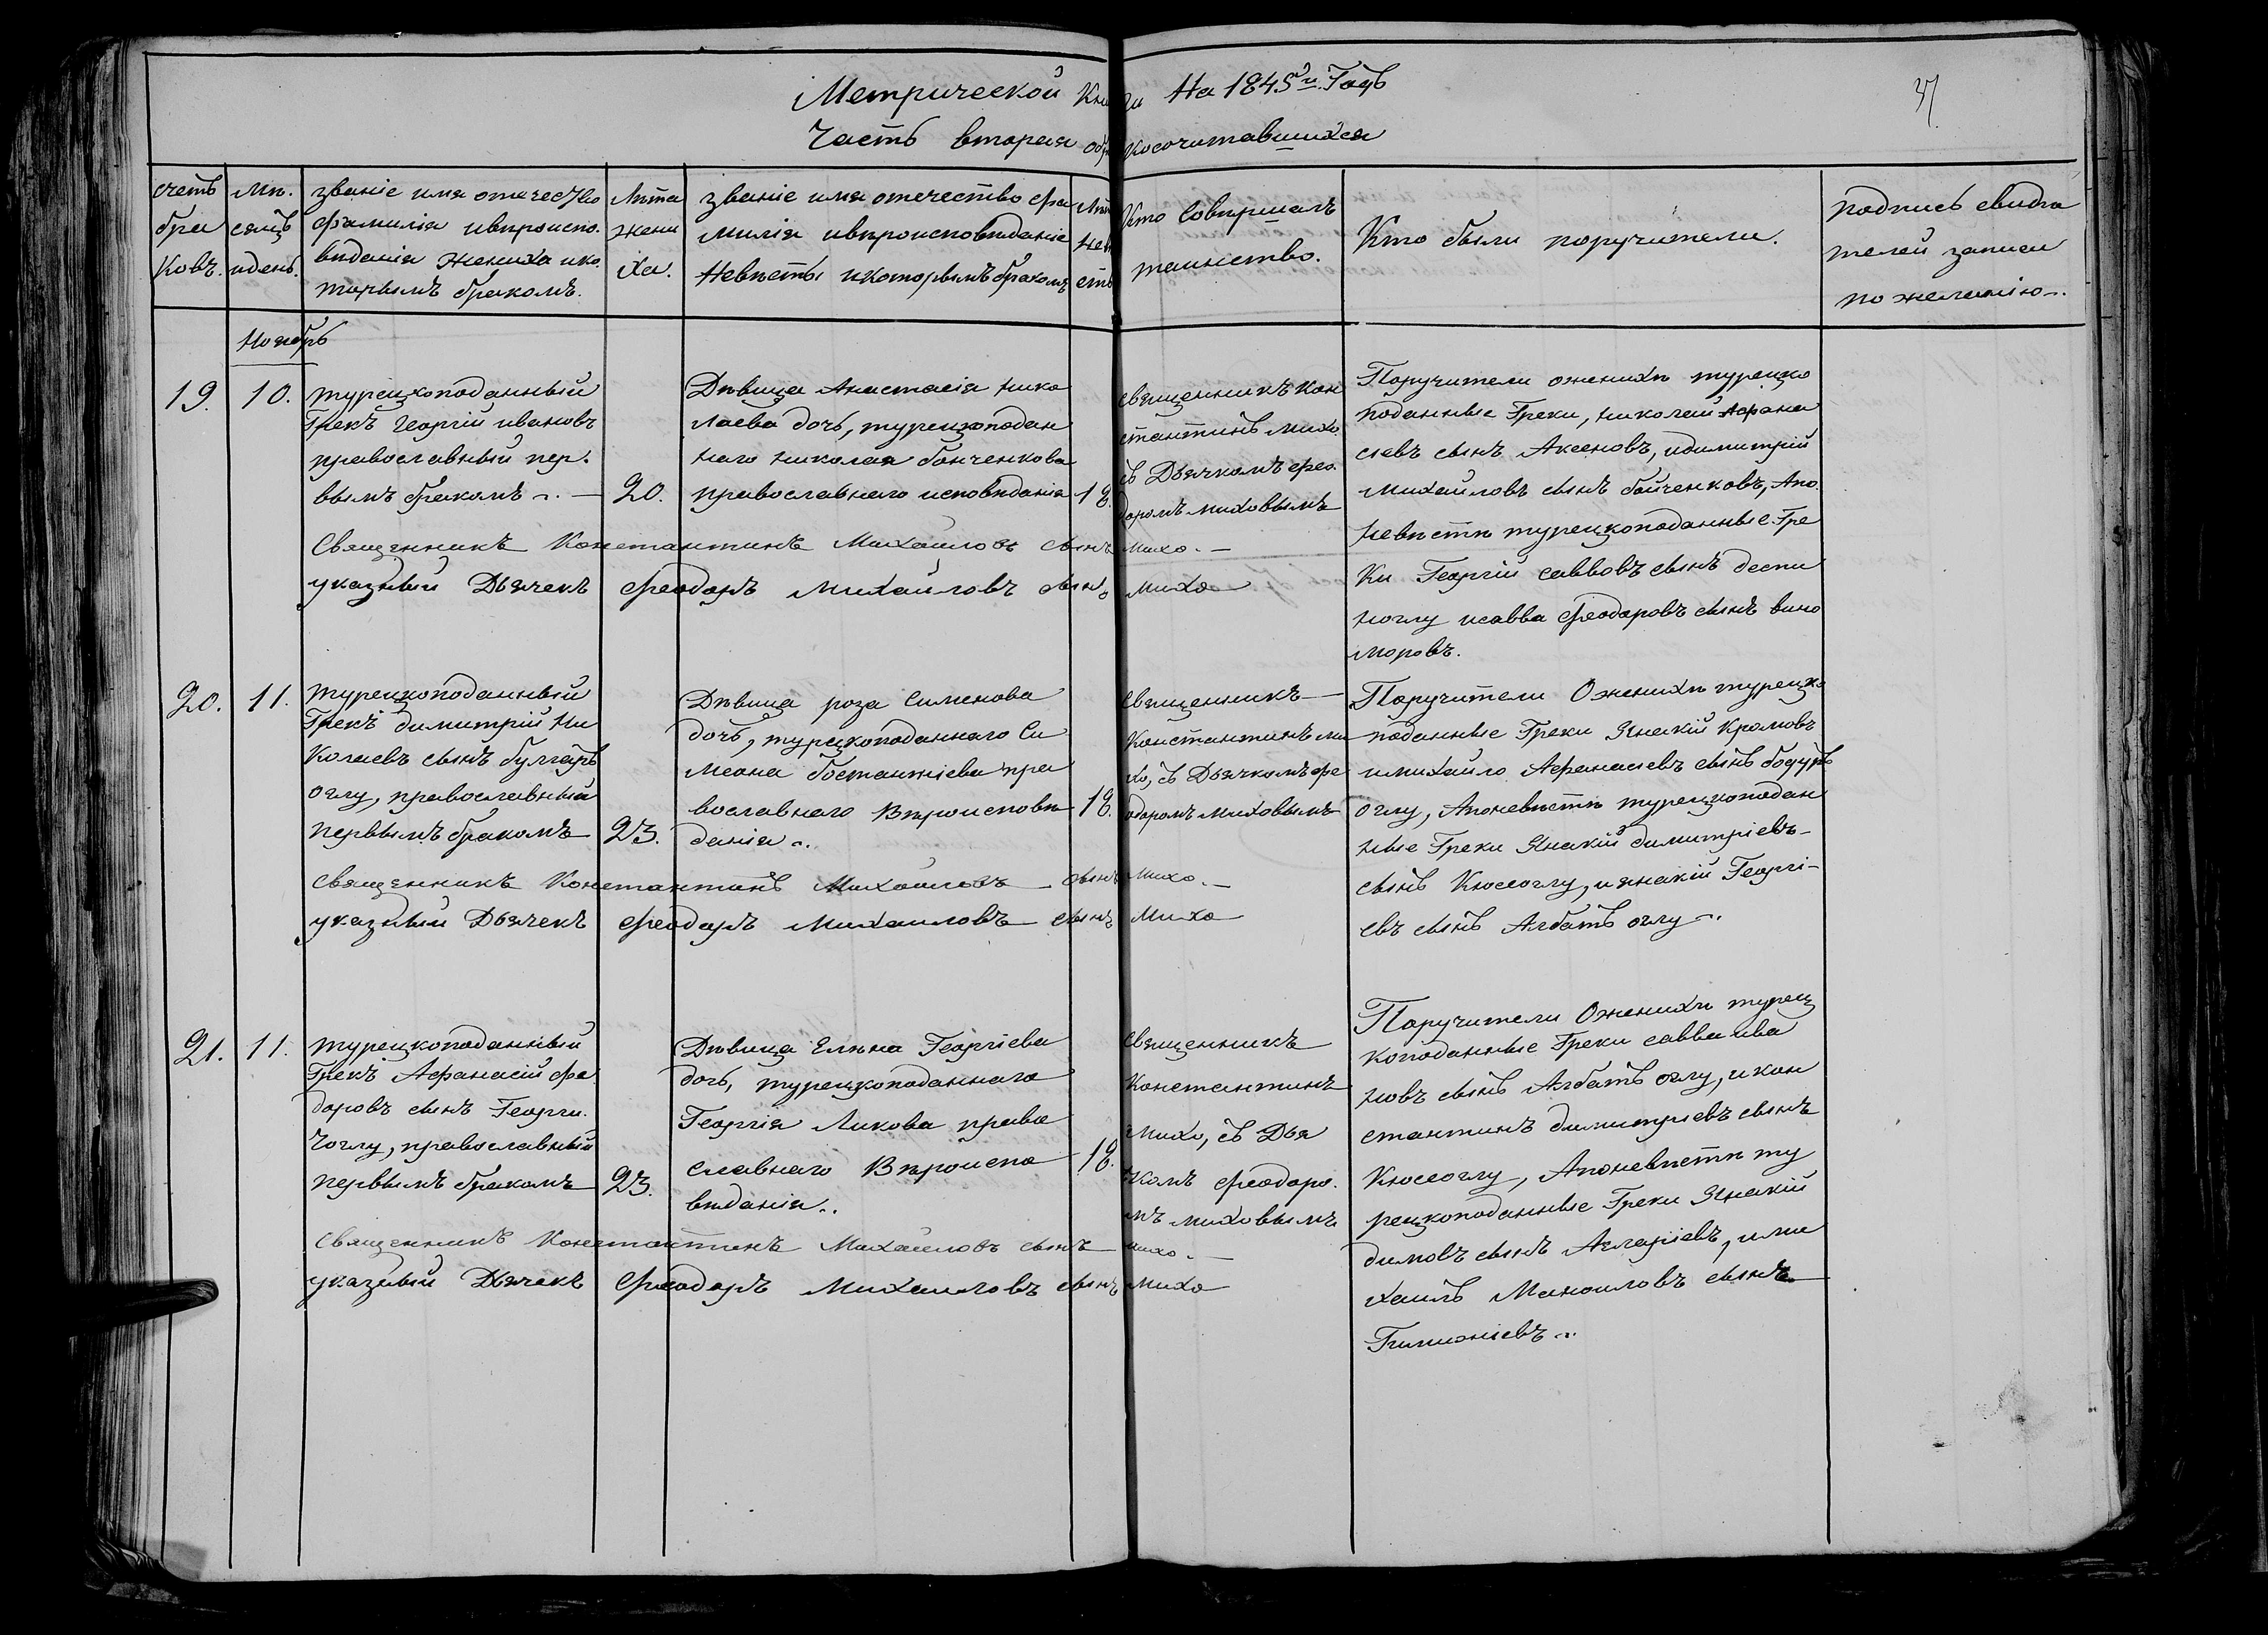 Метрической Кни ги На 1845й Годъ
37
Часть вторая о бра косочитавшихся
счетъ бра ковъ.
Мѣ. сяцъ идень.
званіе имя отечество
фамилія ивѣроиспо.
вѣданія Жениха ико.
торымъ бракомъ.
Лѣта жени ха.
званіе имя отечество фа
милія ивѣроисповѣданіе
Невѣсты икоторымъ бракомъ
Лѣт Нев есты
Кто Совершалъ
таинство.
Кто были поручители.
подпись свидѣ
телей записи
по желанію.
Ноябрь
19.
10.
турецкоподанный
Грекъ Георгій ивановъ
православный пер.
вымъ бракомъ
20.
Дѣвица Анастасія Нико
лаева дочь, турецкоподан
наго Николая бойченкова
православнаго исповѣданія
18.
священникъ Кон
стантинъ михо
съ Дьячкомъ фео.
доромъ миховымъ
Поручители оженихѣ турецко
поданные Греки, николай Афана
сіевъ сынъ Аксеновъ, идимитрій
михайловъ сынъ бойченковъ, Апо.
невѣстѣ турецкоподанные Гре
Ки Георгій саввовъ сынъ деспи
ноглу исавва феодоровъ сынъ вино
моровъ.
Священникъ Константинъ Михайловъ сынъ Михо.
указный Дьячекъ Феодоръ Михайловъ сынъ Михо
20.
11.
турецкоподанный
Грекъ димитрій Ни
Колаевъ сынъ булгаръ
оглу, православный
первымъ бракомъ
23.
Дѣвица роза Сименова
дочь, турецкоподаннаго Си
меона бостанжіева пра
вославнаго Вѣроисповѣ
данія.
18.
Священникъ
Константинъ ми
хо, съ Дьячкомъ фе
одоромъ миховымъ
Поручители Оженихѣ турецко
поданные Греки Янакій Кромовъ
имихайло Афанасіевъ сынъ бодуръ
оглу, Апоневѣстѣ турецкоподан
ные Греки Янакій димитріевъ
сынъ Кюсеоглу, иянакій Георгі-
евъ сынъ Агбатъ оглу
священникъ Константинъ Михайловъ сынъ Михо.
указный Дьячекъ феодоръ Михаиловъ сынъ Михо
21.
11.
турецкоподанный
Грекъ Афанасій фе
доровъ сынъ Георги.
Чоглу, православный
первымъ бракомъ
23.
Дѣвица Елѣна Георгіева
дочь, турецкоподаннаго
Георгія Ликова право
славнаго Вѣроиспо
вѣданія.
18.
Священникъ
Константинъ
михо, съ Дья
чкомъ феодоро.
мъ миховымъ
Поручители Оженихѣ турец
коподанные Греки савва ива
новъ сынъ Агбатъ оглу, икон
стантинъ димитріевъ сынъ
Кюсеоглу, Апоневѣстѣ ту
рецкоподанные Греки Янакій
димовъ сынъ Агларіевъ, ими
хаилъ Маноиловъ сынъ
Гимижіевъ
Священникъ Константинъ Михайловъ сынъ Михо.
указный Дьячекъ Феодоръ Михаиловъ сынъ Михо